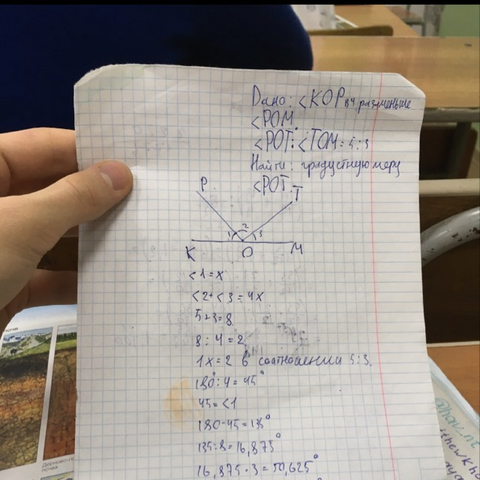 Дано: <КОР в 4 раза меньше
<РОМ.
<РОТ:<ТОМ = 5:3
Найти: градустную меру
<РОТ
Р
Т
1
2
3
К
О
М
<1=x
<2+<3=4x
5+3=8
8:4=2
1x=2 в соотношении 5:3.
180°:4=45°
45=<1
180-45=135°
135:8=16,875°
16,875·3=50,625°